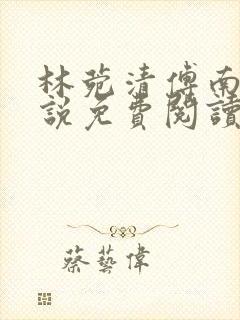 林菀清傅南
說免費閱讀
蔡藝偉